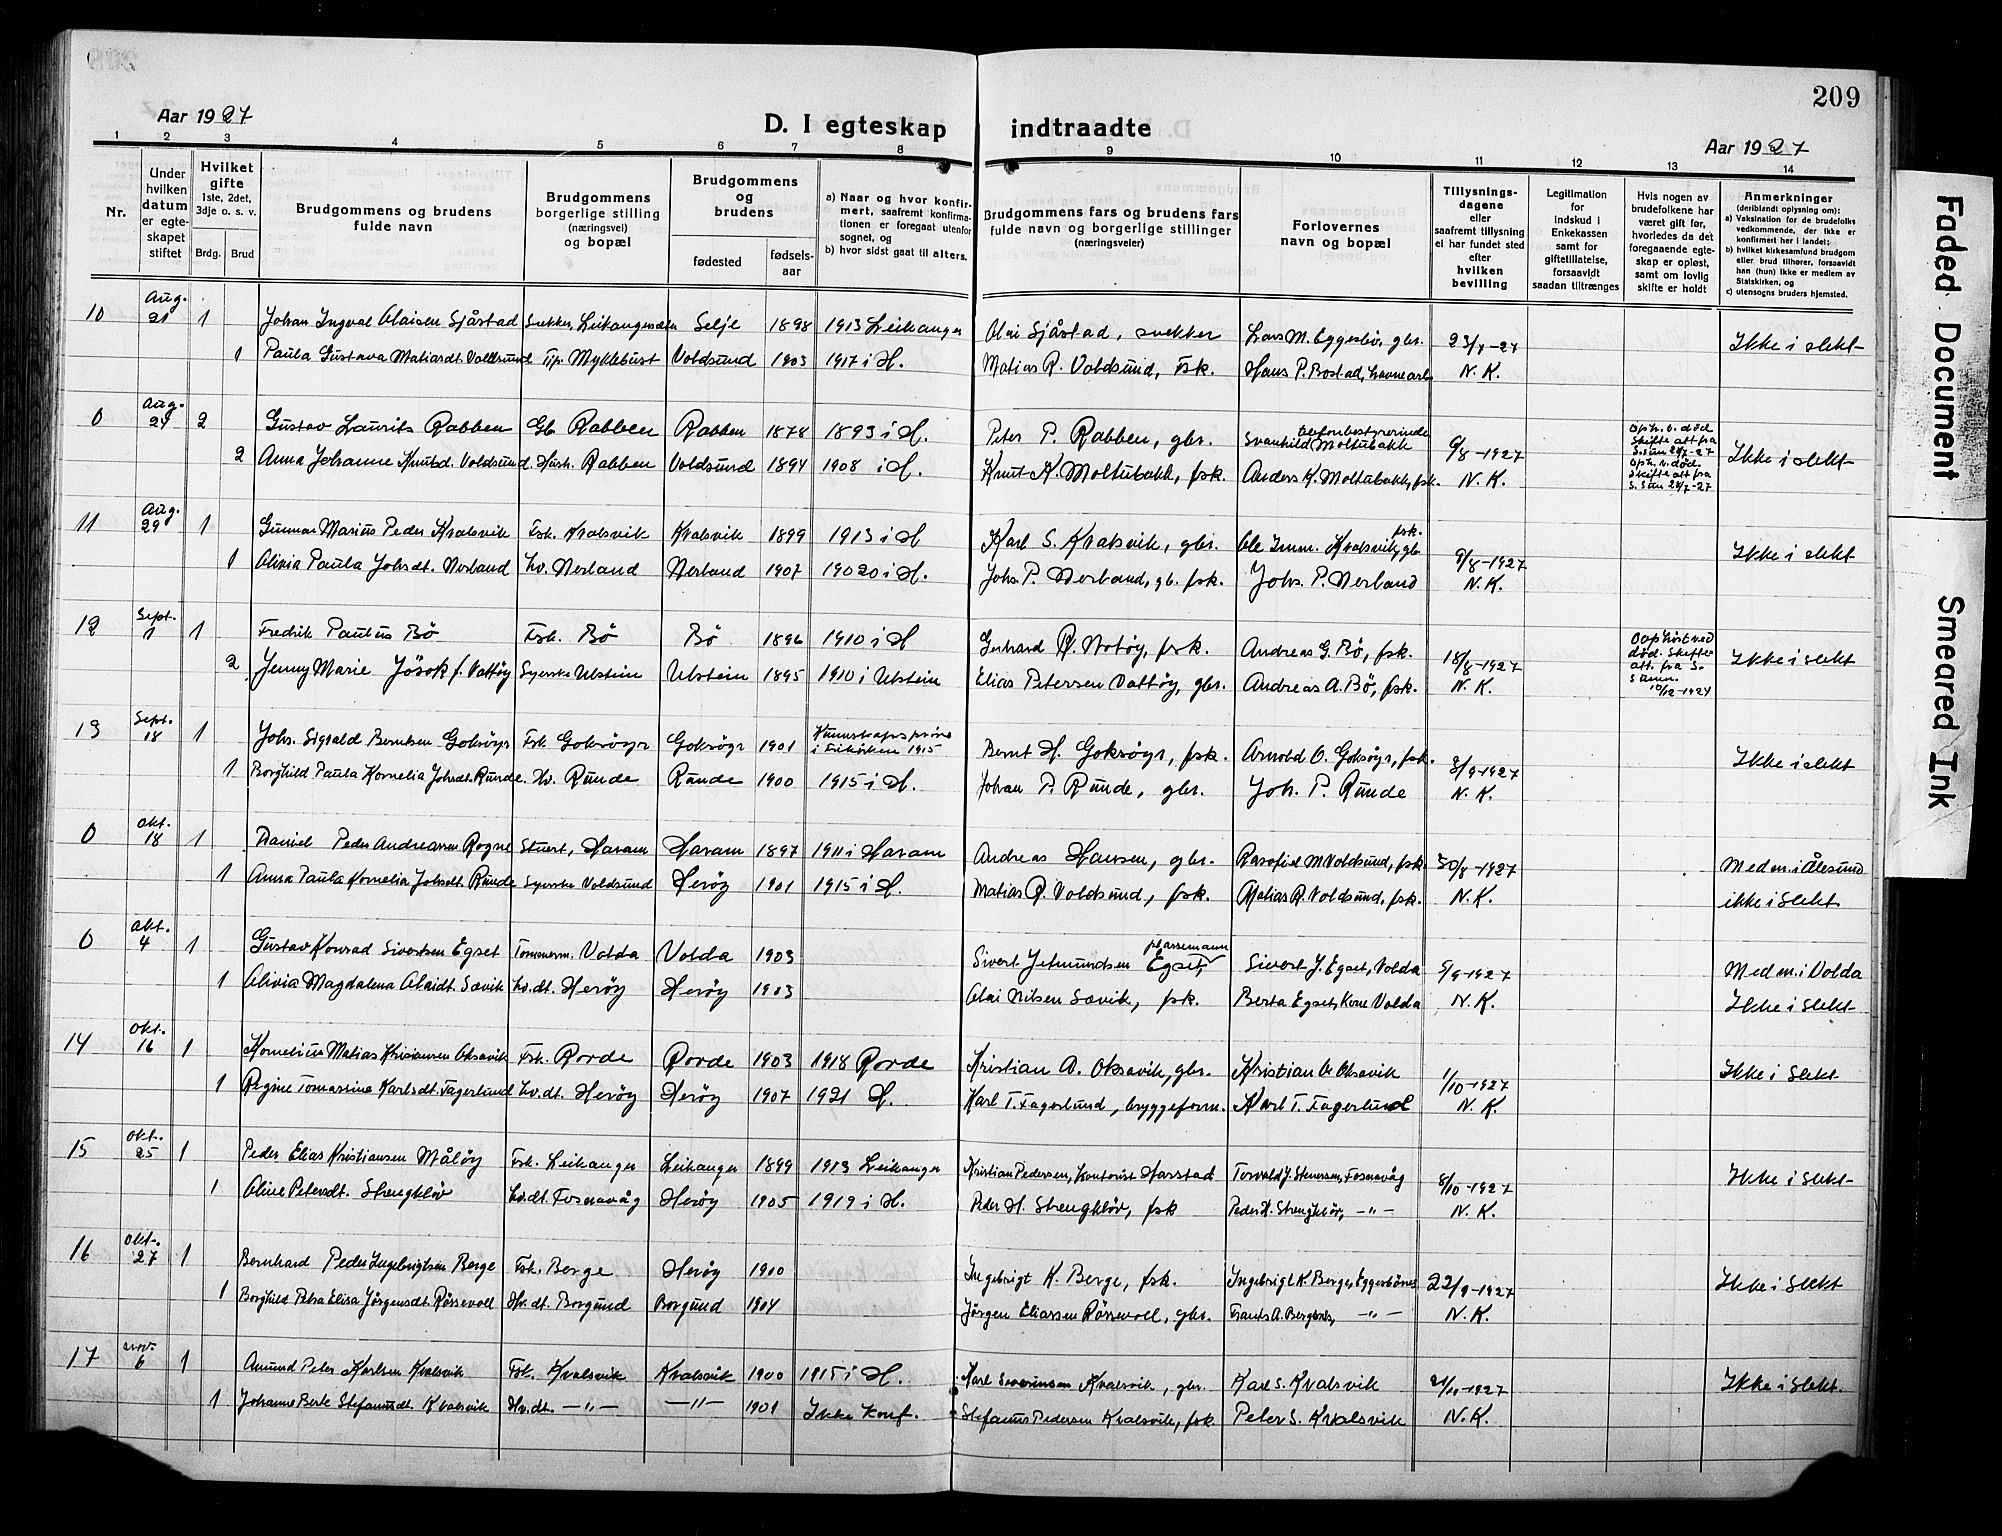 209
Aar 1927
D. I egteskap indtraadte
Aar 1927
1 2 3 4 5 6 7 8 9 10 11 12 13 14
Nr.
Under hvilken datum er egte-skapet stiftet
Hvilket gifte
1ste, 2det, 3dje o. s. v.
Brdg. Brud
Brudgommens og brudens fulde navn
Brudgommens borgerlige stilling (næringsvei) og bopæl
Brudgommens og brudens
fødested
fødsels-aar
a) Naar og hvor konfir-mert, saafremt konfirma-tionen er foregaat utenfor sognet, og
b) hvor sidst gaat til alters.
Brudgommens fars og brudens fars fulde navn og borgerlige stillinger (næringsveier)
Forlovernes navn og bopæl
Tillysnings-dagene eller saafremt tillysning ei har fundet sted efter hvilken bevilling
Legitimation for indskud i Enkekassen samt for giftetillatelse, forsaavidt saadan tiltrænges
Hvis nogen av brudefolkene har været gift før, hvorledes da det foregaaende egte-skap er opløst, samt om lovlig skifte er holdt
Anmerkninger (deriblandt oplysning om):
a) Vaksination for de brudefolks vedkommende, der ikke er konfirmert her i landet;
b) hvilket kirkesamfund brudgom eller brud tilhører, forsaavidt han (hun) ikke er medlem av Statskirken, og
c) utensogns bruders hjemsted.
10 Aug. 21 1 Johan Ingval Olaisen Sjåstad Snekker, Leikangersdalen Selje 1898 1913 Leikanger Olai Sjåstad, snekker Lars M. Eggesbø, gbr. 23/7-27 Ikke i slekt
1 Paula Gustava Matiasdt. Voldsund Tjp. Myklebust Voldsund 1903 1917 i H. Matias R. Voldsund, Fsk. Hans P. Bostad, N. K.
0 Aug. 24 2 Gustav Laurits Rabben Gb. Rabben Rabben 1878 1893 i H. Peter P. Rabben, gbr. Svanhild Moltubakk telefonbestyrerinde 9/8-1927 Oph. v. død Skifte att fra S.sun 24/7-27 Ikke i slekt
2 Anna Johanne Knutsd. Voldsund Hush. Rabben Voldsund 1894 1908 i H. Knut K. Moltubakk, fsk. Anders K. Moltubakk, fsk. N. K. Oph. v. død. Skifte att fra S. Sun 24/7-27
11 Aug. 29 1 Gunnar Marius Peder Kvalsvik Fsk. Kvalsvik Kvalsvik 1899 1913 i H Karl S. Kvalsvik, gbr. Ole Imm. Kvalsvik, gb fsk. 9/8-1927 Ikke i slekt
1 Olivia Paula Johsdt. Nerland hv. Nerland Nerland 1907 19020 i H. Johs. P. Nerland, gb. fsk. Johs. P. Nerland N. K.
12 Sept. 1 1 Fredrik Paulus Bø Fsk. Bø Bø 1896 1910 i H Gerhard R. Notøy, fsk. Andreas G. Bø, fsk. 18/8-1927 Ophøst ved død. Skifte att. fra S. Sunn. 10/12-1924 Ikke i slekt
2 Jenny Marie Jøsok f. Vattøy Syerske Ulstein Ulstein 1895 1910 i Ulstein Elias Petersen Vattøy, gbr. Andreas A. Bø, fsk. N. K.
13 Sept. 18 1 Johs. Sigvald Berntsen Goksøyr Fsk. Goksøyr Goksøyr 1901 Kunnskapsprøve i 1915 Bernt H. Goksøyr, fsk. Arnold O. Goksøyr, fsk. 3/9-1927 Ikke i slekt
1 Borghild Paula Kornelia Johsdt. Runde. Hv. Runde Runde 1900 1915 i H. Johan P. Runde, gbr. Joh. P. Runde N. K.
0 Okt. 18 1 Daniel Peder Andreassen Rogne Stuert, Haram Haram 1897 1911 i Haram Andreas Hansen, gbr. Rasofie M Voldsund, fsk 30/8-1927 Med m. i Ålesund
1 Anna Paula Kornelia Johsdt. Runde Syerske Voldsund Herøy 1901 1915 i H. Matias R. Voldsund, fsk. Matias R. Voldsund, fsk. N. K. ikke i slekt
0 Okt. 4 1 Gustav Konrad Sivertsen Egset Tømmerm. Volda Volda 1903 Sivert Jetmundsen Egset, plassemann Sivert J. Egset, Volda 5/9-1927 Med m. i Volda
1 Olivia Magdalena Olaidt. Sævik hv.dt. Herøy Herøy 1903 Olai Nilsen Sævik, fsk. Berta Egset, Kone Volda N. K. Ikke i slekt
14 Okt. 16 1 Kornelius Matias Kristiansen Oksavik Fsk. Rovde Rovde 1903 1918 Rovde Kristian O. Oksavik, gbr. Kristian O. Oksavik 1/10-1927 Ikke i slekt
1 Regine Tomassine Karlsdt. Fagerlund hv.dt. Herøy Herøy 1907 1921 H. Karl T. Fagerlund, bryggeform. Karl T. Fagerlund N. K.
15 Okt. 25 1 Peder Elias Kristiansen Måløy Fsk. Leikanger Leikanger 1899 1913 Leikanger Kristian Pedersen, Kontorist Harstad Torvald J. Stenersen, Fosnavåg 8/10-1927 Ikke i Slekt
1 Oline Petersdt. Strengkløv hv.dt. Fosnavåg Herøy 1905 1919 i H. Peder H. Strengkløv, fsk Peder H. Strengkløv, -"- N. K.
16 Okt. 27 1 Bernhard Peder Ingebrigtsen Berge Fsk. Berge Herøy 1900 Ingebrigt K. Berge, fsk. Ingebrigt K. Berge, Eggesbønes 22/9-1927 Ikke i slekt
1 Borghild Petra Elisa Jørgensdt. Røssevoll Hv.dt. Borgund Borgund 1904 Jørgen Eliassen Røssevoll, gbr. Frants A. Bergsnes, -"- N. K.
17 Nov. 6 1 Amund Peter Karlsen Kvalsvik Fsk. Kvalsvik Kvalsvik 1900 1915 i H. Karl Severinsen Kvalsvik, gbr. Karl S. Kvalsvik 2/11-1927 Ikke i slekt.
1 Johanne Berte Stefanusdt Kvalsvik Hv.dt. -"- -"- 1901 Ikke Konf. Stefanus Pedersen Kvalsvik, fsk Peter S. Kvalsvik N. K.
Faded Document
Smeared Ink